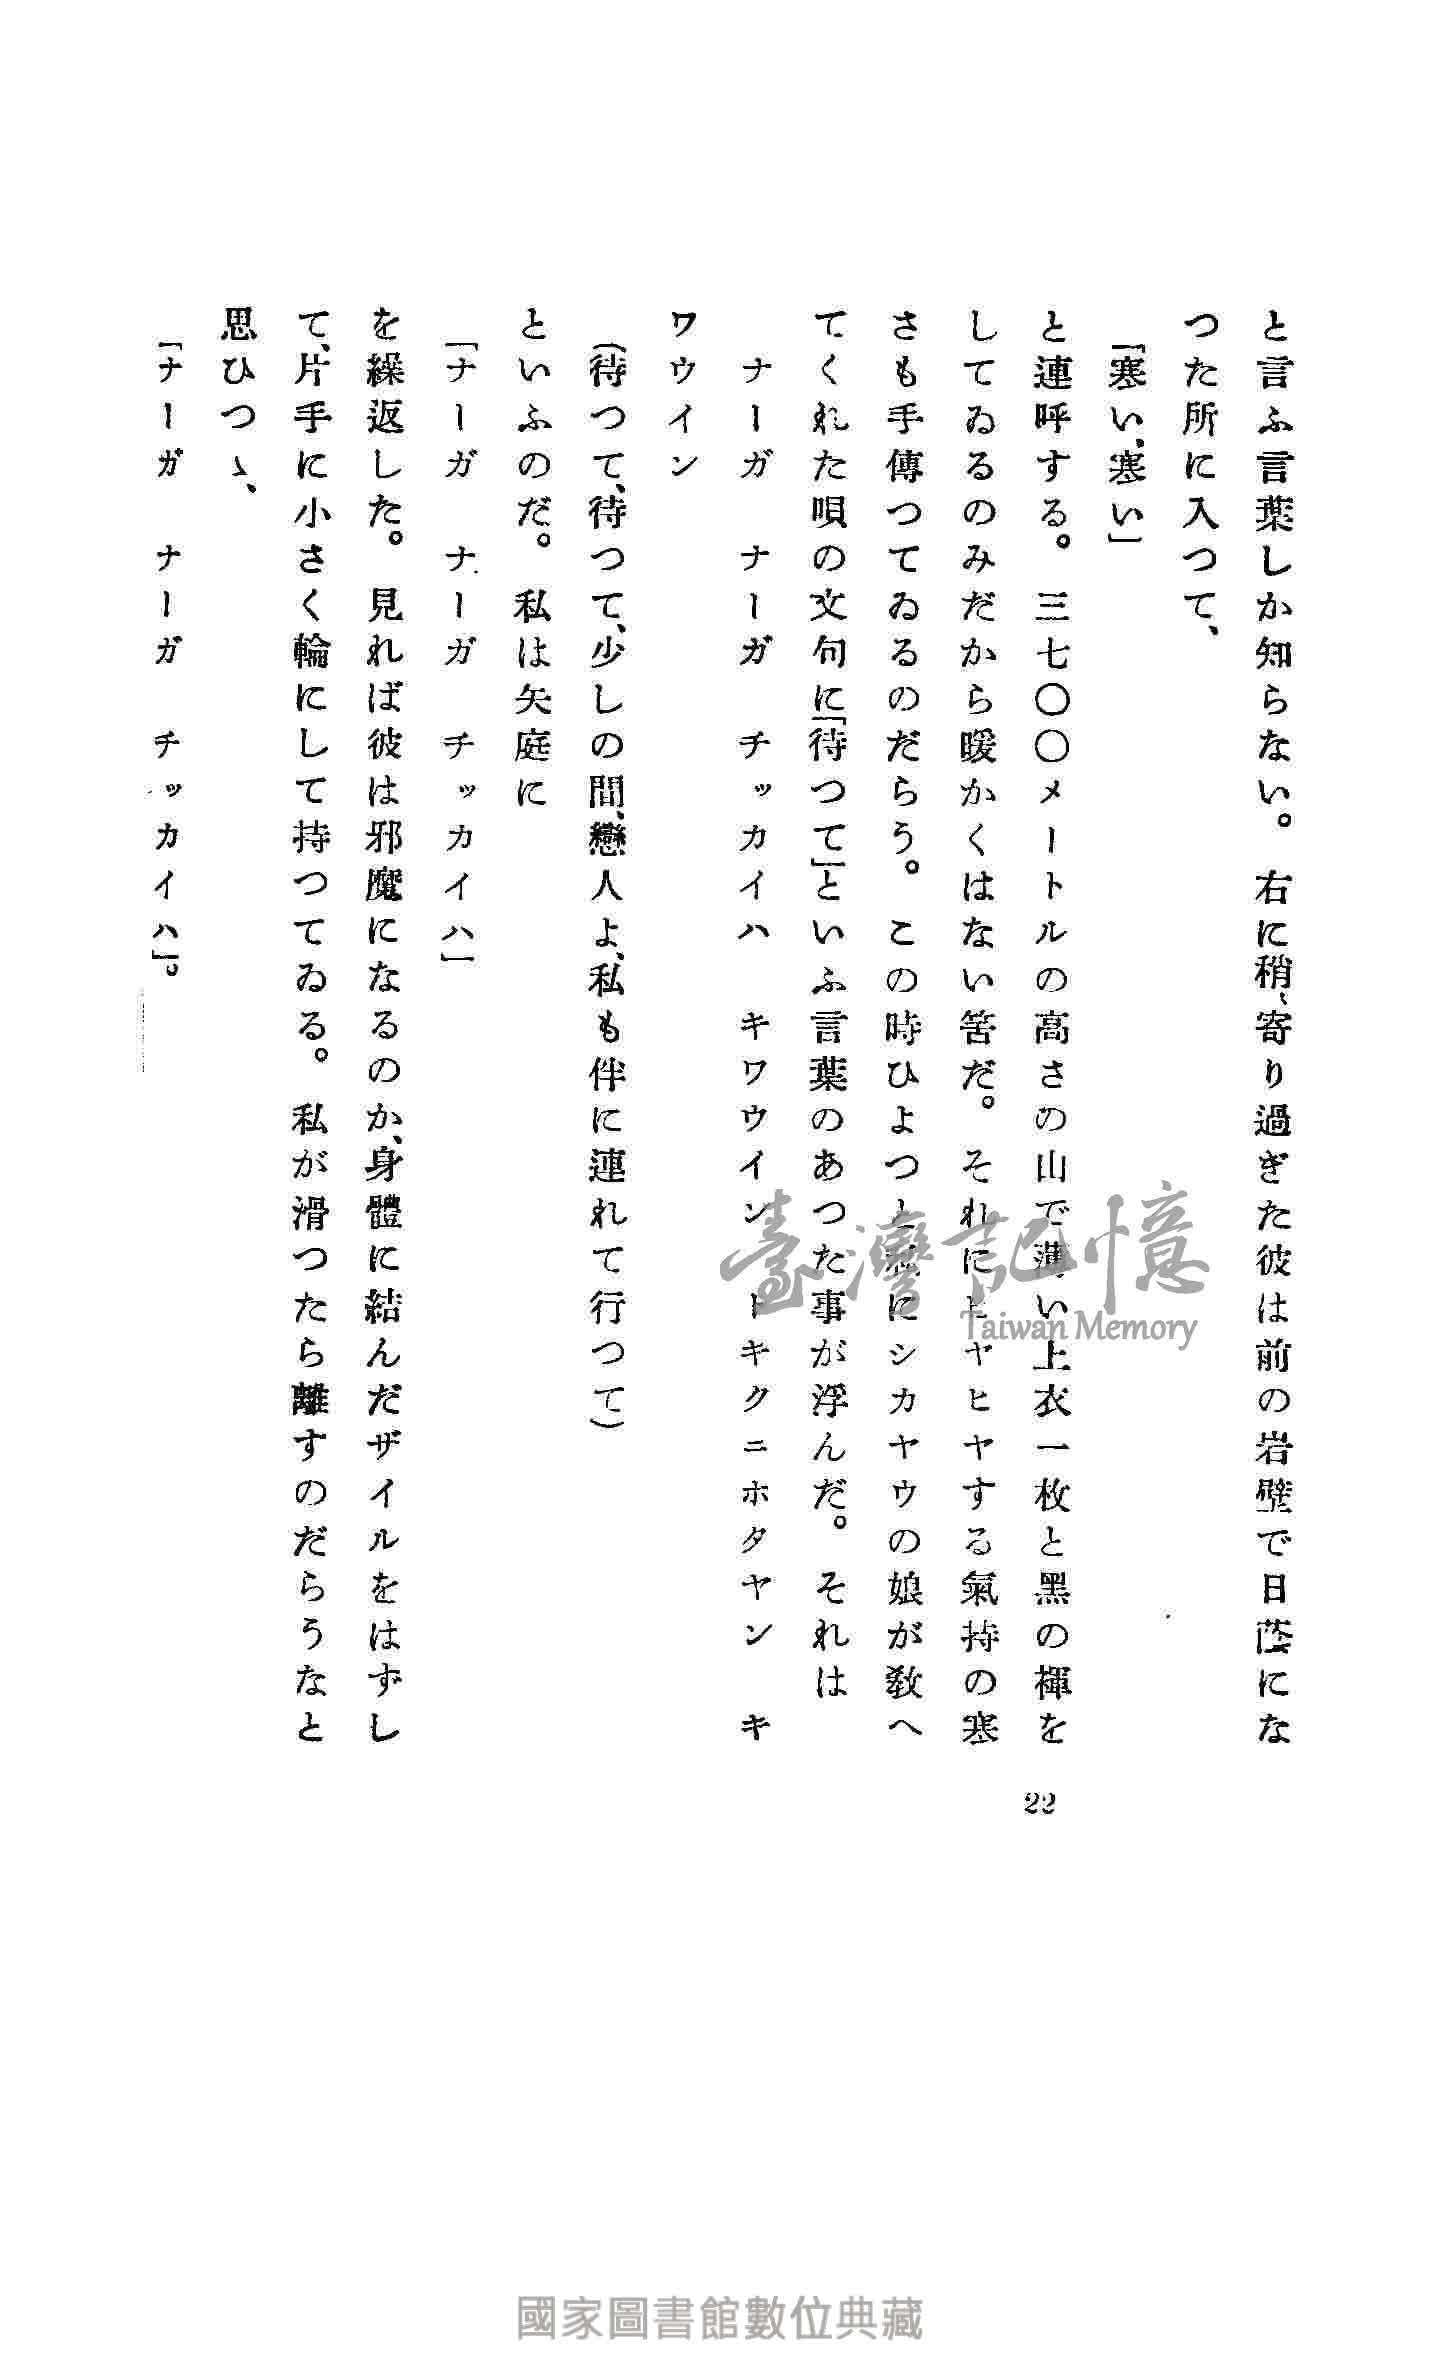 と言ふ言葉しか知らない。右に稍〻寄り過ぎた彼は前の岩壁で日蔭にな
つた所に入つて、
「寒い、寒い」
と連呼する。三七〇〇メートルの高さの山で薄い上衣一枚と黒の褌を
してゐるのみだから暖かくはない筈だ。それにヒヤヒヤする氣持の寒
さも手傳つてゐるのだらう。この時ひよつと私にシカヤウの娘が敎へ
てくれた唄の文句に「待つて」といふ言葉のあつた事が浮んだ。それは
ナーガ ナーガ チッカイハ キワウイン トキクニホタヤン キ
ワウイン
(待つて、待つて、少しの間、戀人よ、私も伴に連れて行つて)
といふのだ。私は矢庭に
「ナーガ ナーガ チッカイハ」
を繰返した。見れば彼は邪魔になるのか、身體に結んだザイルをはずし
て、片手に小さく輪にして持つてゐる。私が滑つたら離すのだらうなと
思ひつゝ、
「ナーガ ナーガ チッカイハ」。
22
臺灣記憶
Taiwan Memory
國家圖書館數位典藏